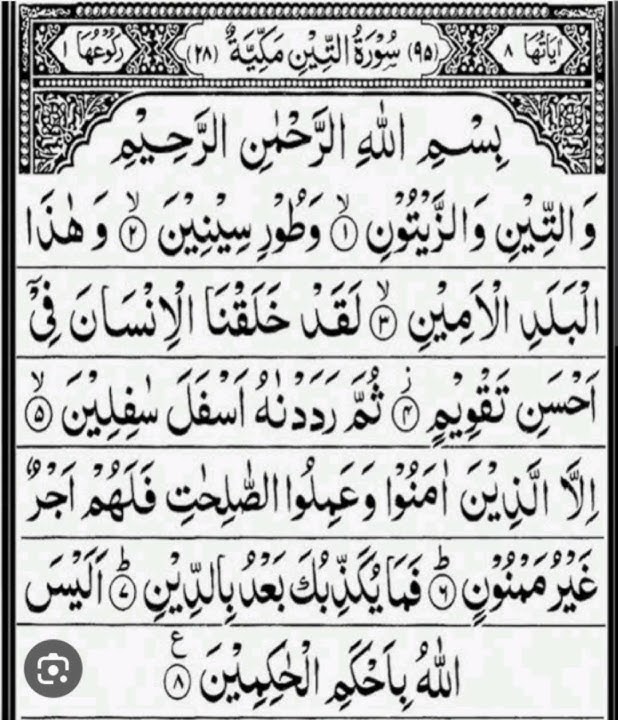 اٰیَاتُهَا ۸ (۹۵) سُوْرَةُ التِّيْنِ مَكِّيَّةٌ (۲۸) رُكُوْعُهَا ۱
بِسْمِ اللّٰهِ الرَّحْمٰنِ الرَّحِيْمِ
وَالتِّيْنِ وَالزَّيْتُوْنِ ۙ‏﴿۱﴾ وَطُوْرِ سِيْنِيْنَ ۙ‏﴿۲﴾ وَهٰذَا
الْبَلَدِ الْاَمِيْنِ ۙ‏﴿۳﴾ لَقَدْ خَلَقْنَا الْاِنْسَانَ فِىْۤ
اَحْسَنِ تَقْوِيْمٍ ز‏﴿۴﴾ ثُمَّ رَدَدْنٰهُ اَسْفَلَ سٰفِلِيْنَ ۙ‏﴿۵﴾
اِلَّا الَّذِيْنَ اٰمَنُوْا وَعَمِلُوا الصّٰلِحٰتِ فَلَهُمْ اَجْرٌ
غَيْرُ مَمْنُوْنٍ ؕ‏﴿۶﴾ فَمَا يُكَذِّبُكَ بَعْدُ بِالدِّيْنِ ؕ‏﴿۷﴾ اَلَيْسَ
اللّٰهُ بِاَحْكَمِ الْحٰكِمِيْنَ ع‏﴿۸﴾